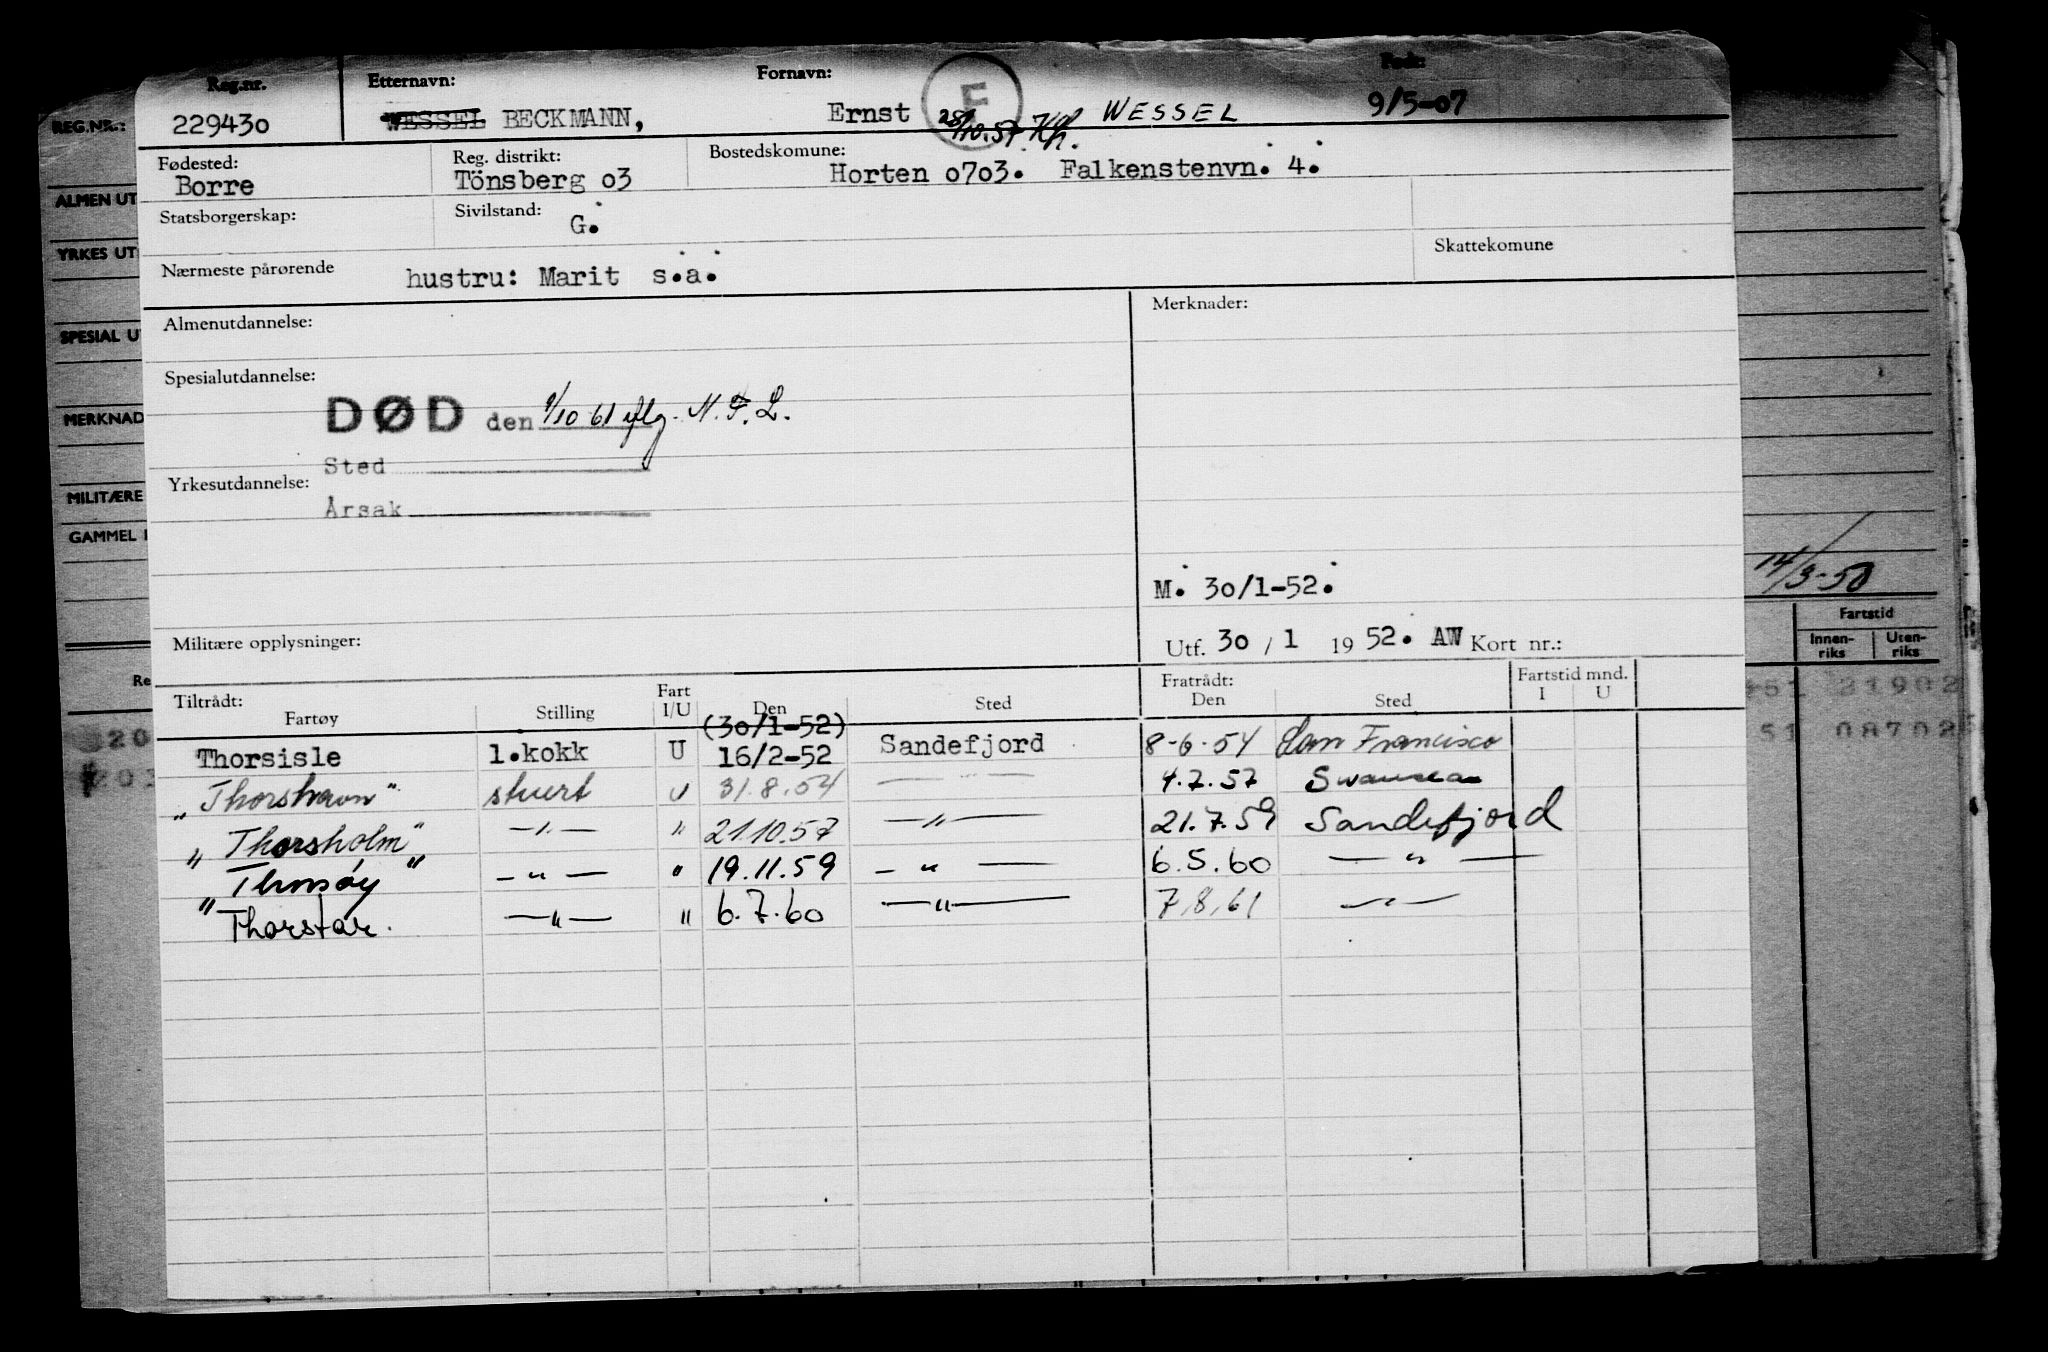 Reg.nr. Etternavn: Fornavn: Født:
229430 WESSEL BECKMANN, Ernst F WESSEL 9/5-07
28/10.57 Kh.
REG.NR.:
Fødested: Reg. distrikt: Bostedskomune:
Borre Tönsberg 03 Horten 0703. Falkenstenvn. 4.
ALMEN UT
Statsborgerskap: Sivilstand: G.
YRKES UT
Skattekomune
Nærmeste pårørende hustru: Marit s.a.
Almenutdannelse: Merknader:
SPESIAL U
Spesialutdannelse:
MERKNAD
DØD den 1/10 61 iflg. N. F. L.
Sted
Yrkesutdannelse:
MILITÆRE
Årsak
GAMMEL
14/3-58
M. 30/1-52.
Fartstid
Innen-riks Uten-riks
Militære opplysninger: Utf. 30 / 1 19 52. AW Kort nr.:
Re
51 21902
Tiltrådt: Fratrådt: Fartstid mnd.
Fartøy Stilling Fart I/U Den Sted Den Sted I U
(30/1-52)
51 08702
20
Thorsisle 1.kokk U 16/2-52 Sandefjord 8-6-54 San Francisco
203
"Thorshavn" stuert U 31.8.54 — 4.7.57 Swansea
"Thorsholm" —"— " 21.10.57 —"— 21.7.59 Sandefjord
"Thorsøy" —"— " 19.11.59 —"— 6.5.60 —"—
"Thorstar. —"— " 6.7.60 —"— 7,8,61 —"—